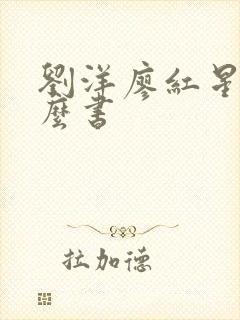 劉洋廖紅星
麼書
拉加德